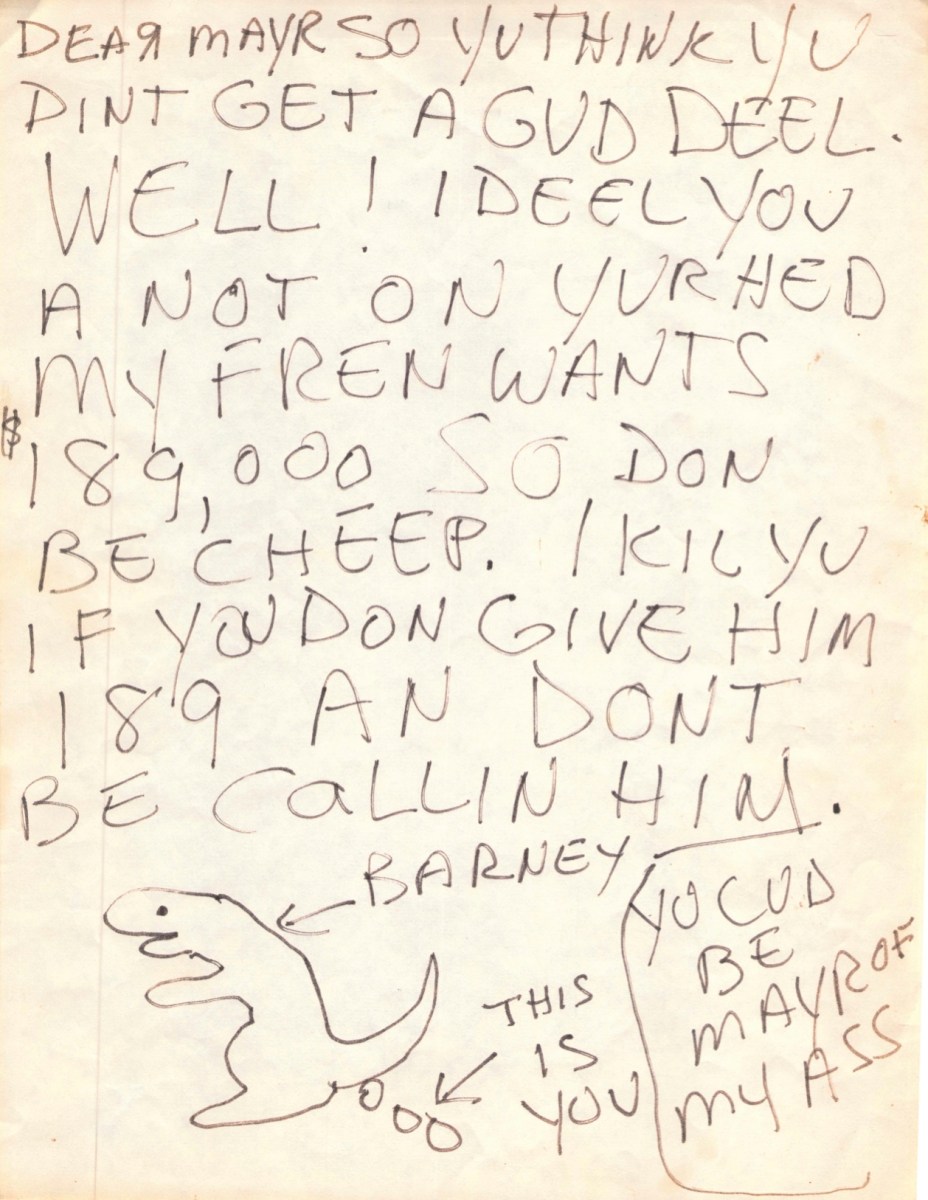 DEAR MAYR SO YU THINK YU
DINT GET A GUD DEEL.
WELL! I DEEL YOU
A NOT ON YUR HED
MY FREN WANTS
$189,000 SO DON
BE CHEEP. I KIL YU
IF YOU DON GIVE HIM
189 AN DONT
BE CALLIN HIM.
BARNEY
THIS
IS
YOU
YU CUD
BE
MAYR OF
MY ASS